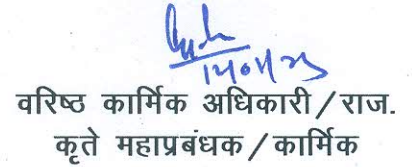 वरिष्ठ कार्मिक अधिकारी / राज.
कृते महाप्रबंधक / कार्मिक